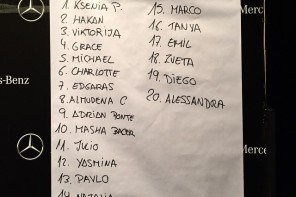 1. KSENIA P.
2. HAKAN
3. VIKTORIJA
4. GRACE
5. MICHAEL
6. CHARLOTTE
7. EDGARAS
8. ALMUDENA C
9. ADRIAN PONTE
10. MASHA
11. JULIO
12. YASMINA
13. PAVLO
14. NATALIA
15. MARCO
16. TANYA
17. EMIL
18. ZVETA
19. DIEGO
20. ALESSANDRA
Merce
s-Benz
Merce